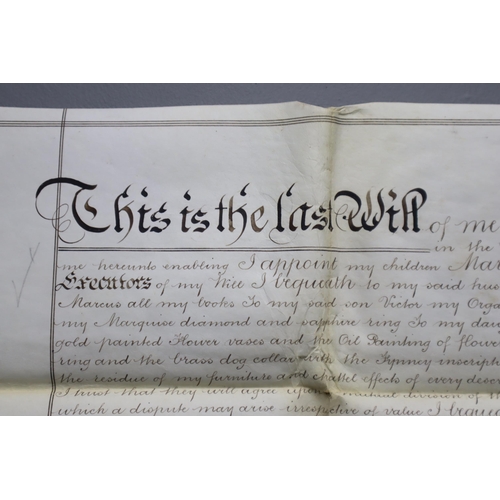 This is the last Will of me
in the
me hereunto enabling I appoint my children Mar
Executors of my Will I bequeath to my said hus
Marcus all my books To my said son Victor my Orga
my Marquise diamond and sapphire ring To my dau
gold painted Flower vases and the Oil Painting of flower
ring and the brass dog collar with the inscripti
the residue of my furniture and chattel effects of every desc
I trust that they will agree upon a mutual division of th
which a dispute may arise irrespective of value I beque